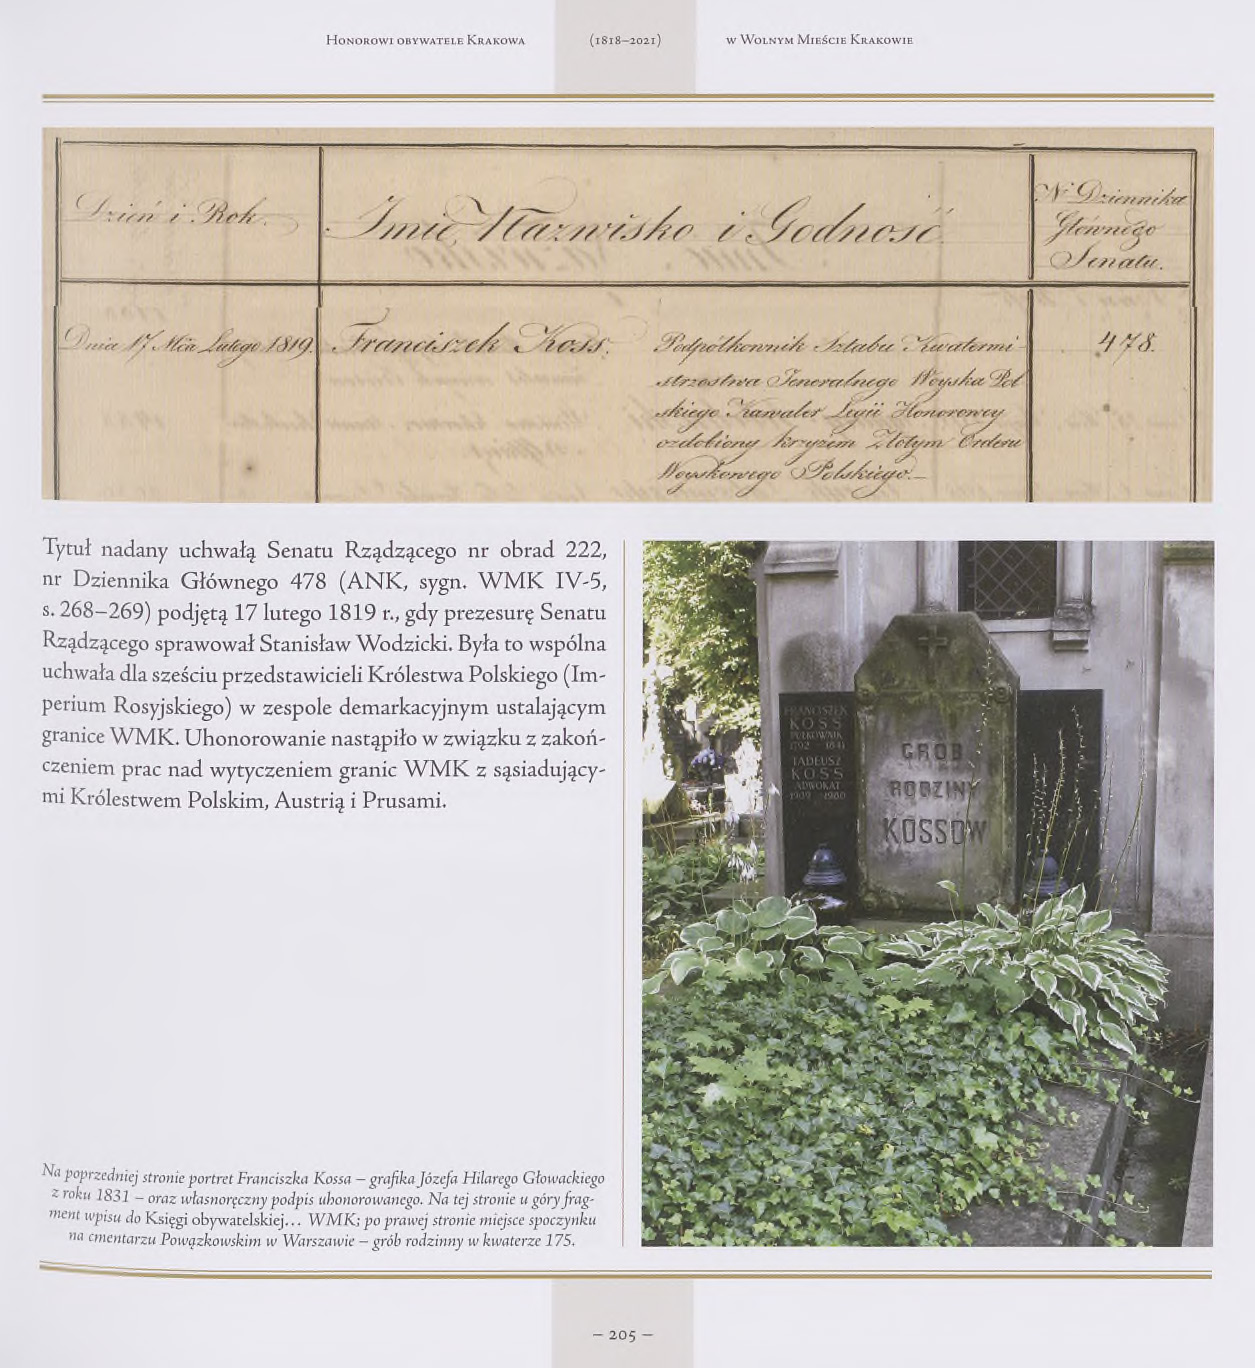 Honorowi obywatele Krakowa (1818–2021) w Wolnym Mieście Krakowie
Dzień i Rok.
Imię, Nazwisko i Godność
Nr Dziennika
Głównego
Senatu.
Dnia 17 Mca Lutego 1819.
Franciszek Koss.
Podpółkownik Sztabu Kwatermi-
strzostwa Jeneralnego Woyska Pol
skiego Kawaler Legii Honorowey
ozdobiony krzyżem Złotym Orderu
Woyskowego Polskiego.—
478.
Tytuł nadany uchwałą Senatu Rządzącego nr obrad 222,
nr Dziennika Głównego 478 (ANK, sygn. WMK IV-5,
s. 268–269) podjętą 17 lutego 1819 r., gdy prezesurę Senatu
Rządzącego sprawował Stanisław Wodzicki. Była to wspólna
uchwała dla sześciu przedstawicieli Królestwa Polskiego (Im-
perium Rosyjskiego) w zespole demarkacyjnym ustalającym
granice WMK. Uhonorowanie nastąpiło w związku z zakoń-
czeniem prac nad wytyczeniem granic WMK z sąsiadujący-
mi Królestwem Polskim, Austrią i Prusami.
FRANCISZEK
KOSS
PUŁKOWNIK
1792 – 1841
TADEUSZ
KOSS
ADWOKAT
1909 – 1980
GRÓB
RODZINY
KOSSÓW
Na poprzedniej stronie portret Franciszka Kossa – grafika Józefa Hilarego Głowackiego
z roku 1831 – oraz własnoręczny podpis uhonorowanego. Na tej stronie u góry frag-
ment wpisu do Księgi obywatelskiej… WMK; po prawej stronie miejsce spoczynku
na cmentarzu Powązkowskim w Warszawie – grób rodzinny w kwaterze 175.
– 205 –